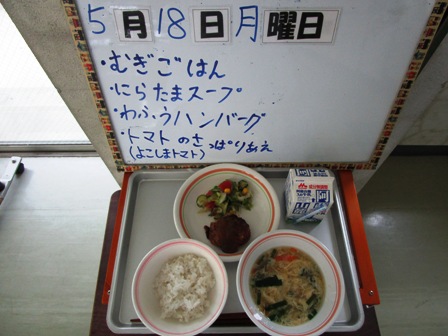 5月18日月曜日
・むぎごはん
・にらたまスープ
・わふうハンバーグ
・トマトのさっぱりあえ
(よこしまトマト)